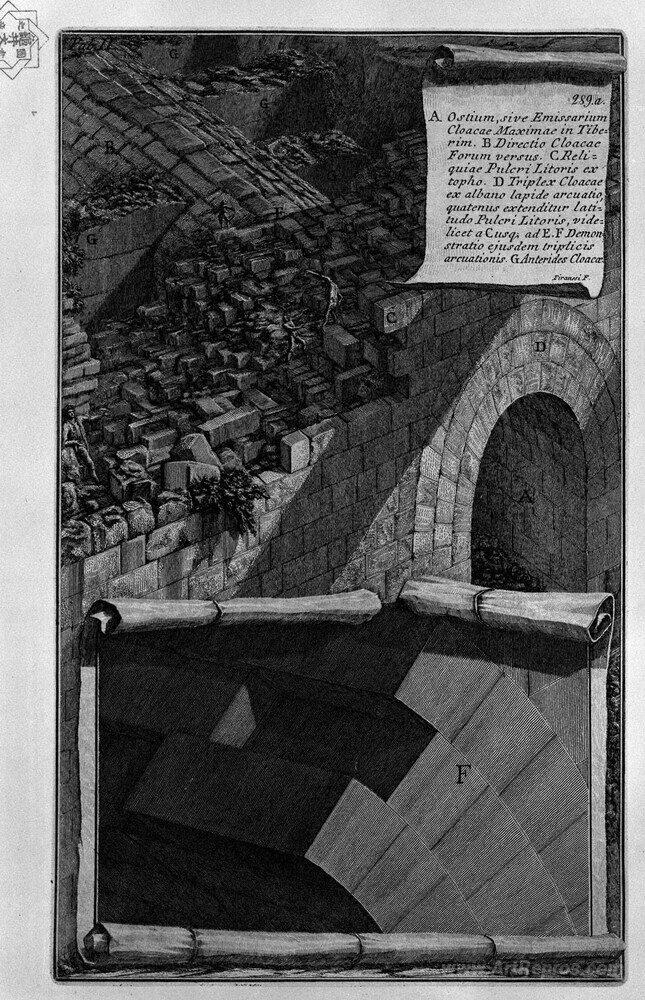 Tab. II
289.a.
A Ostium, sive Emissarium
Cloacae Maximae in Tibe=
rim. B Directio Cloacae
Forum versus. C Reli=
quiae Pulcri Litoris ex
topho. D Triplex Cloacae
ex albano lapide arcuatio,
quatenus extenditur lati=
tudo Pulcri Litoris, vide=
licet a C usq. ad E. F Demon=
stratio ejusdem triplicis
arcuationis. G Anterides Cloacæ
Piranesi F.
G
G
B
E
G
C
D
A
F
www.ArtRepros.com